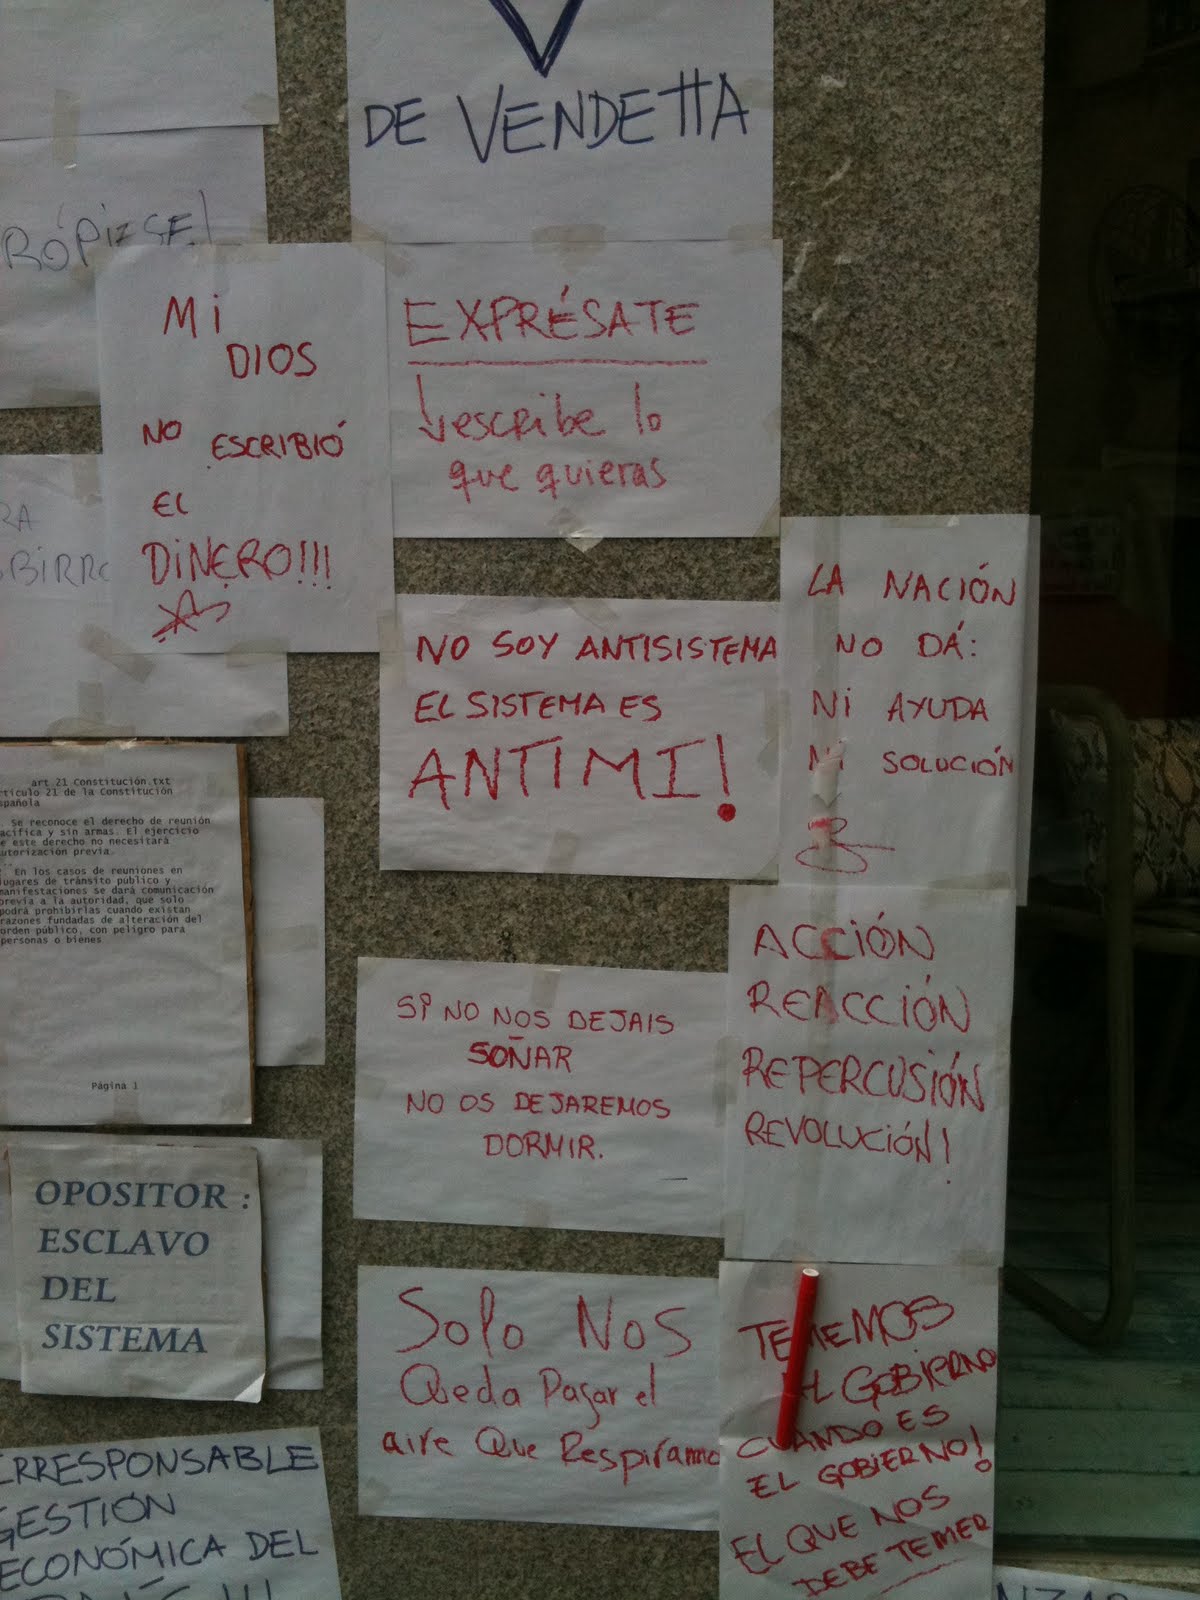 V
DE VENDETTA
RÓPIZSE!
MI
DIOS
NO ESCRIBIÓ
EL
DINERO!!!
EXPRÉSATE
escribe lo
que quieras
RA
BIRRO
NO SOY ANTISISTEMA
EL SISTEMA ES
ANTIMI!
LA NACIÓN
NO DÁ:
NI AYUDA
NI SOLUCIÓN
art 21 Constitución.txt
rtículo 21 de la Constitución
spañola
. Se reconoce el derecho de reunión
acífica y sin armas. El ejercicio
e este derecho no necesitará
utorización previa.
En los casos de reuniones en
lugares de tránsito público y
manifestaciones se dará comunicación
previa a la autoridad, que solo
podrá prohibirlas cuando existan
razones fundadas de alteración del
orden público, con peligro para
personas o bienes
Página 1
ACCIÓN
REACCIÓN
REPERCUSIÓN
REVOLUCIÓN!
SI NO NOS DEJAIS
SOÑAR
NO OS DEJAREMOS
DORMIR.
OPOSITOR:
ESCLAVO
DEL
SISTEMA
Solo Nos
Queda Pagar el
aire Que Respiramo
TEMEMOS
AL GOBIERNO
CUANDO ES
EL GOBIERNO!
EL QUE NOS
DEBE TEMER
IRRESPONSABLE
GESTIÓN
ECONÓMICA DEL